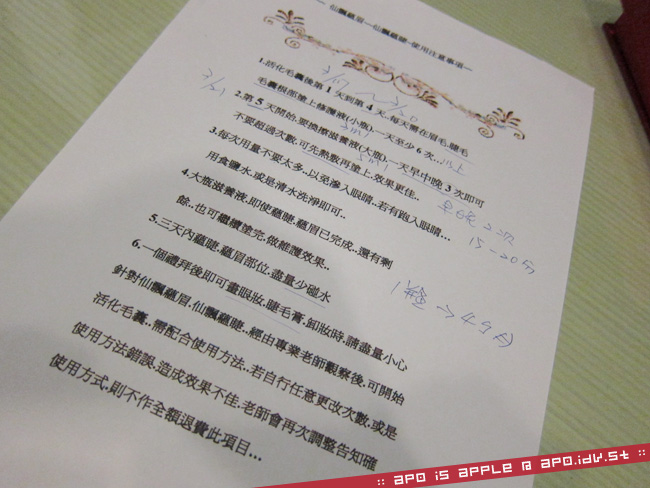 仙飄蘊眉—仙飄蘊睫-使用注意事項—
1.活化毛囊後第1天到第4天..每天需在眉毛.睫毛
毛囊根部塗上修護液(小瓶)一天至少6次...以上
3/17 ~ 3/20
3/21
3ml
2.第5天開始.要換擦滋養液(大瓶).一天早中晚3次即可
不要超過次數.可先熱敷再塗上.效果更佳..
5ml
早晚2次
15-20分
3.每次用量不要太多..以免滲入眼睛..若有跑入眼睛...
用食鹽水.或是清水洗淨即可..
4.大瓶滋養液.即使蘊睫.蘊眉已完成..還有剩
餘..也可繼續塗完.做維護效果..
5.三天內蘊睫.蘊眉部位.盡量少碰水
6.一個禮拜後即可畫眼妝.睫毛膏.卸妝時.請盡量小心
→4個月
針對仙飄蘊眉.仙飄蘊睫..經由專業老師觀察後.可開始
活化毛囊..需配合使用方法..若自行任意更改次數.或是
使用方法錯誤.造成效果不佳.老師會再次調整告知確
使用方式.則不作全額退費此項目...
:: apo is apple @ apo.idv.st ::